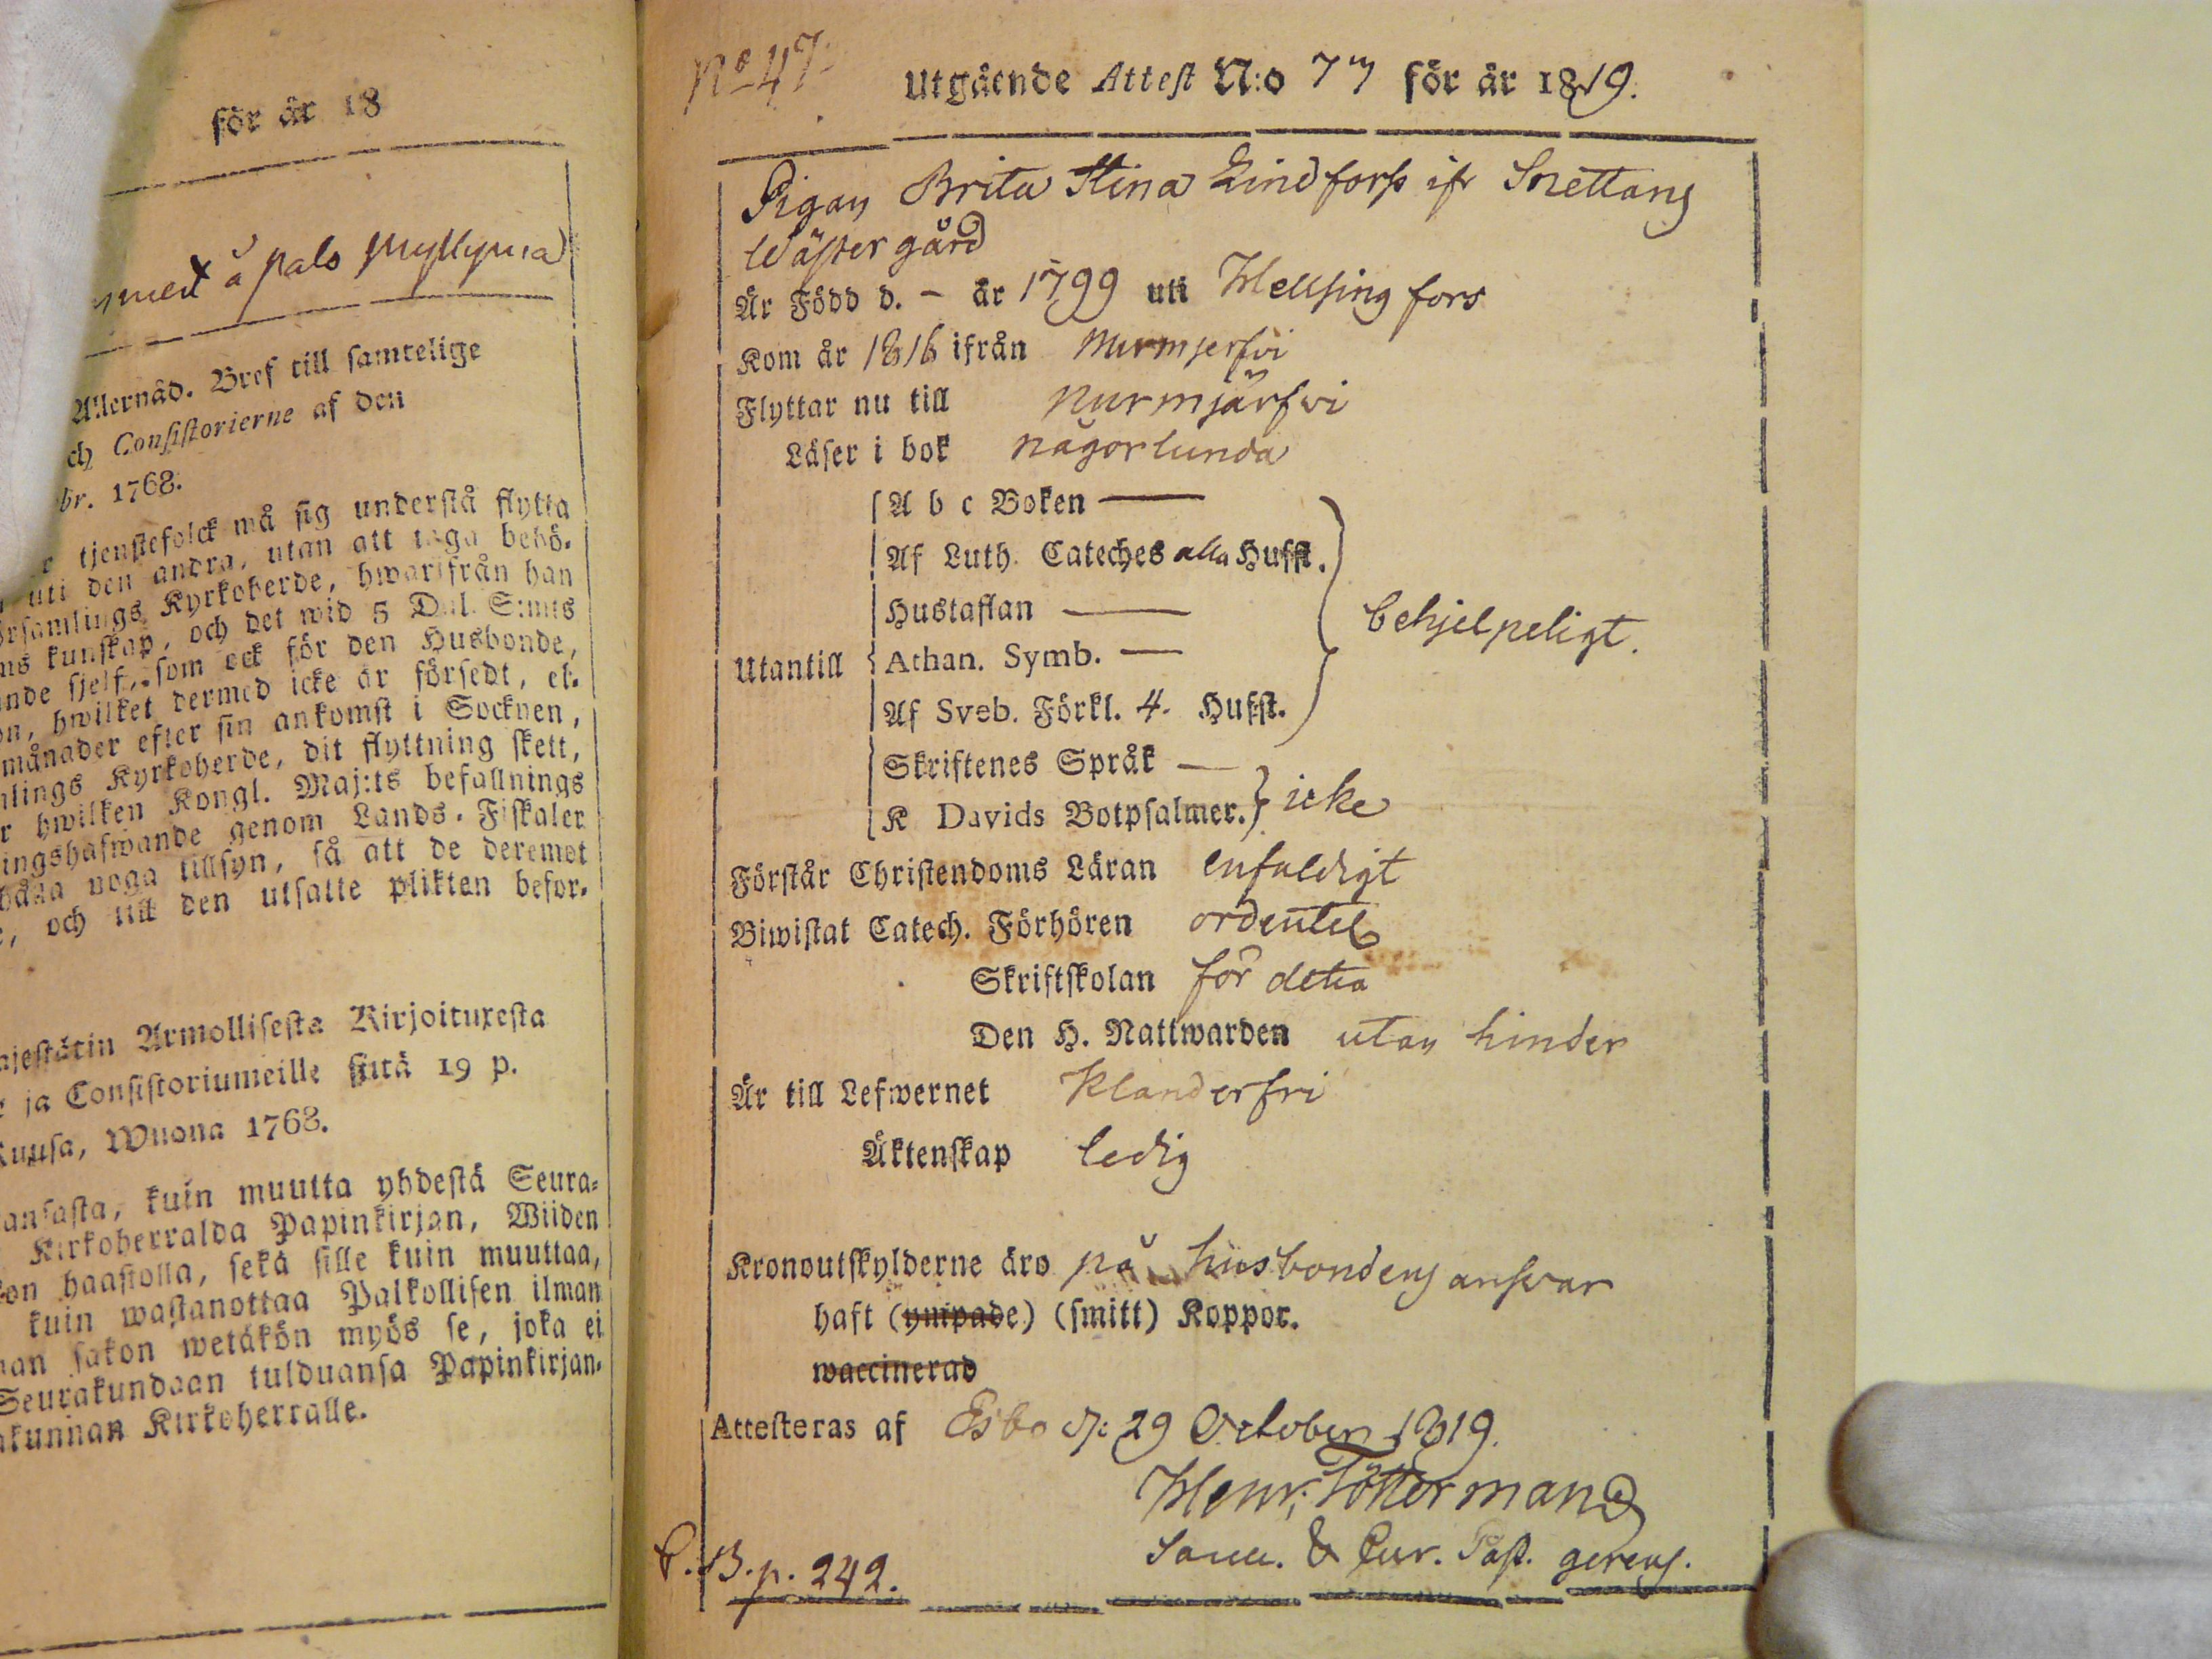 för år 18
med å palo Myllymä
Allernåd. Bref till samtelige
ch Consistorierne af den
br. 1768.
tjenstefolck må sig understå flytta
uti den andra, utan att taga behö-
rsamlings Kyrkoherde, hwarifrån han
ns kunskap, och det wid 5 Dal. S:mts
nde sjelf, som ock för den Husbonde,
on, hwilket dermed icke är försedt, el-
månader efter sin ankomst i Socknen,
lings Kyrkoherde, dit flyttning skett,
r hwilken Kongl. Maj:ts befallnings
ingshafwande genom Lands-Fiskaler
hålla noga tillsyn, så att de deremot
, och till den utsatte plikten befor-
ajestätin Armollisesta Kirjoituxesta
ja Consistoriumeille siitä 19 p.
Kuusa, Wuona 1768.
ansasta, kuin muutta yhdestä Seura-
Kirkoherralda Papinkirjan, Wiiden
kon haastolla, sekä sille kuin muuttaa,
kuin wastanottaa Palkollisen ilman
an sakon wetäkön myös se, joka ei
Seurakundaan tulduansa Papinkirjan-
akunnan Kirkoherralle.
No 47.
Utgående Attest N:o 77 för år 1819.
Pigan Brita Stina Lindforss ifr Snettans
Wästergård
Är Född d. - år 1799 uti Hellsingfors
Kom år 1816 ifrån Nurmjerfvi
Flyttar nu till Nurmjärfvi
Läser i bok någorlunda
A b c Boken —
Af Luth. Cateches alla Hufst.
Hustaflan —
behjelpeligt.
Utantill Athan. Symb. —
Af Sveb. Förkl. 4. Hufst.
Skriftenes Språk —
K Davids Botpsalmer. icke
Förstår Christendoms Läran enfaldigt
Biwistat Catech. Förhören ordentel
Skriftskolan för detta
Den H. Nattwarden utan hinder
Är till Lefwernet Klanderfri
Äktenskap ledig
Kronoutskylderne äro på husbondens answar
haft (ympade) (smitt) Koppor.
waccinerad
Attesteras af Esbo d: 29 October 1819.
Henr: Töttermand
&amp; Cur. Past. gerens.
B. p. 242.